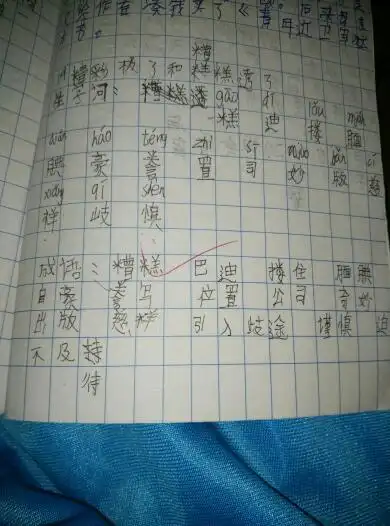 糟
川 精彩 极 了和 糕 糕 透 了
生字词：糟糕透 gāo dí lǒu miǎn
糕 迪 搂 腼
tiǎn háo téng zhì sī miào bǎn cí
腆 豪 誊 置 司 妙 版 慈
xiáng qí shèn
祥 歧 慎
成语：糟糕 巴迪 搂住 腼腆
自豪 誊写 位置 公司 奇妙
出版 慈祥 引入 歧途 谨慎 迫
不及待
待